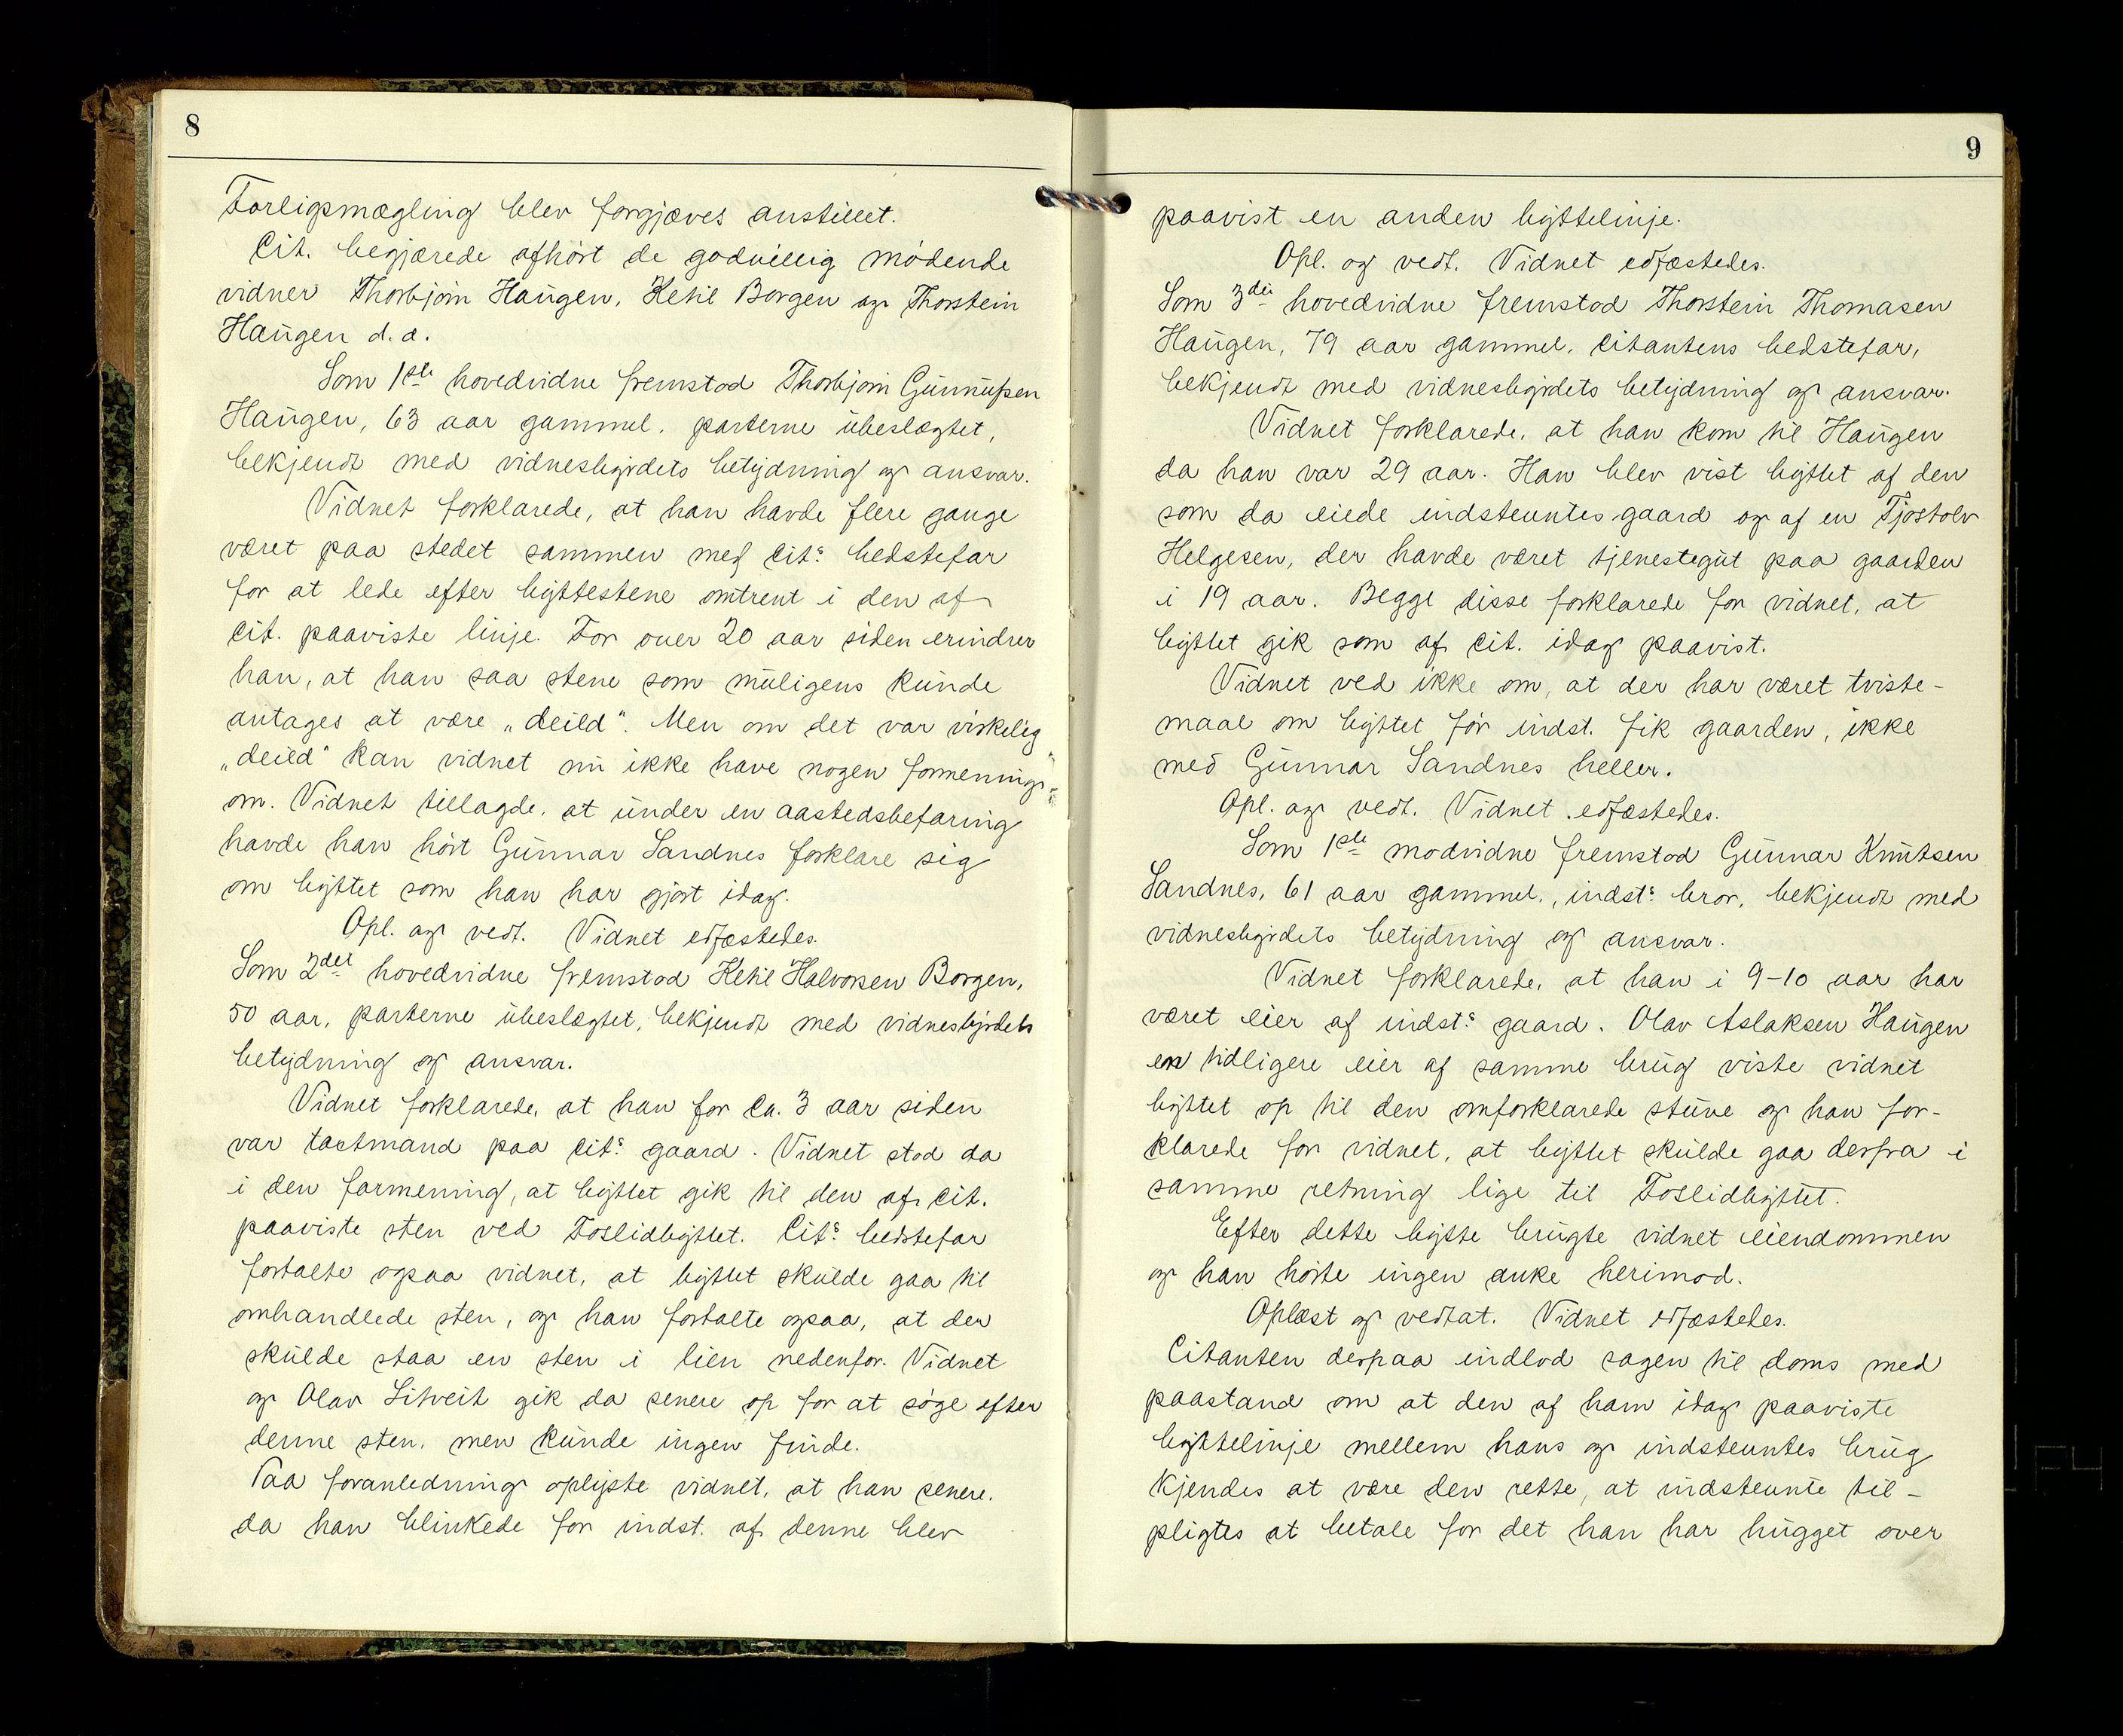 8
Forligsmægling blev forgjæves anstillet.
Cit. begjærede afhørt de godvillig mødende
vidner Thorbjørn Haugen, Ketil Borgen og Thorstein
Haugen d.æ.
Som 1ste hovedvidne fremstod Thorbjørn Gunnufsen
Haugen, 63 aar gammel, parterne ubeslægtet,
bekjendt med vidnesbyrdets betydning og ansvar.
Vidnet forklarede, at han havde flere gange
været paa stedet sammen med cits bedstefar
for at lede efter byttestene omtrent i den af
cit. paaviste linje. For over 20 aar siden erindrer
han, at han saa stene som muligens kunde
antages at være „deild“. Men om det var virkelig
„deild“ kan vidnet nu ikke have nogen formening
om. Vidnet tillagde, at under en aastedsbefaring
havde han hørt Gunnar Sandnes forklare sig
om byttet som han har gjørt idag.
Opl. og vedt. Vidnet edfæstedes.
Som 2det hovedvidne fremstod Ketil Halvorsen Borgen,
50 aar, parterne ubeslægtet, bekjendt med vidnesbyrdets
betydning og ansvar.
Vidnet forklarede, at han for ca. 3 aar siden
var tastmand paa cits gaard. Vidnet stod da
i den formening, at byttet gik til den af cit.
paaviste sten ved Foslidbyttet. Cits bedstefar
fortalte ogsaa vidnet, at byttet skulde gaa til
omhandlede sten, og han fortalte ogsaa, at der
skulde staa en sten i lien nedenfor. Vidnet
og Olav Sitveit gik da senere op for at søge efter
denne sten, men kunde ingen finde.
Paa foranledning oplyste vidnet, at han senere,
da han blinkede for indst. af denne blev
9
paavist en anden byttelinje.
Opl. og vedt. Vidnet edfæstedes.
Som 3die hovedvidne fremstod Thorstein Thomasen
Haugen, 79 aar gammel, citantens bedstefar,
bekjendt med vidnesbyrdets betydning og ansvar.
Vidnet forklarede, at han kom til Haugen
da han var 29 aar. Han blev vist byttet af den
som da eiede indstevntes gaard og af en Tjostolv
Helgesen, der havde været tjenestegut paa gaarden
i 19 aar. Begge disse forklarede for vidnet, at
byttet gik som af cit. idag paavist.
Vidnet ved ikke om, at der har været tviste-
maal om byttet før indst. fik gaarden, ikke
med Gunnar Sandnes heller.
Opl. og vedt. Vidnet edfæstedes.
Som 1ste modvidne fremstod Gunnar Knutsen
Sandnes, 61 aar gammel, indsts bror, bekjendt med
vidnesbyrdets betydning og ansvar.
Vidnet forklarede, at han i 9-10 aar har
været eier af indsts gaard. Olav Aslaksen Haugen
en tidligere eier af samme brug viste vidnet
byttet op til den omforklarede stuve og han for-
klarede for vidnet, at byttet skulde gaa derfra i
samme retning lige til Foslidbyttet.
Efter dette bytte brugte vidnet eiendommen
og han hørte ingen anke herimod.
Oplæst og vedtat. Vidnet edfæstedes.
Citanten derpaa indlod sagen til doms med
paastand om at den af ham idag paaviste
byttelinje mellem hans og indstevntes brug
kjendes at være den rette, at indstevnte til-
pligtes at betale for det han har hugget over